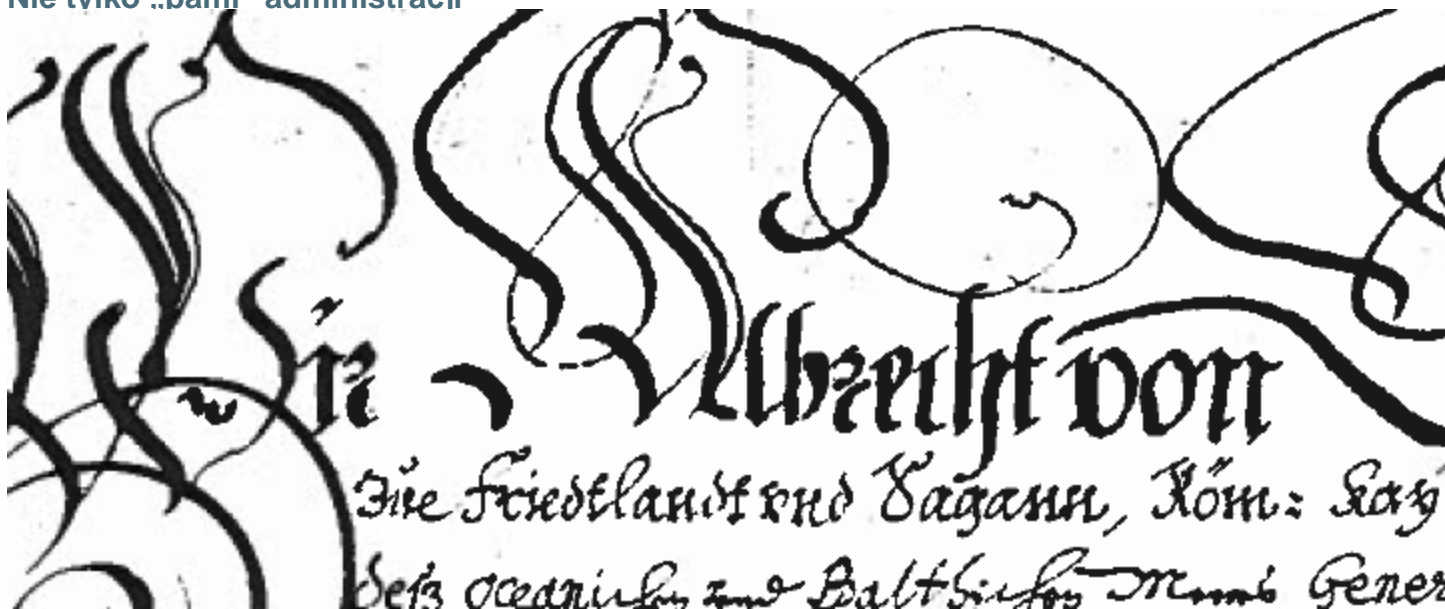 Nie tylko „pami” administracji
Wir Albrecht von
Zue Friedtlandt vnd Sagann, Röm: Kay
deß Oceanischen vnd Balthischen Meers Gener